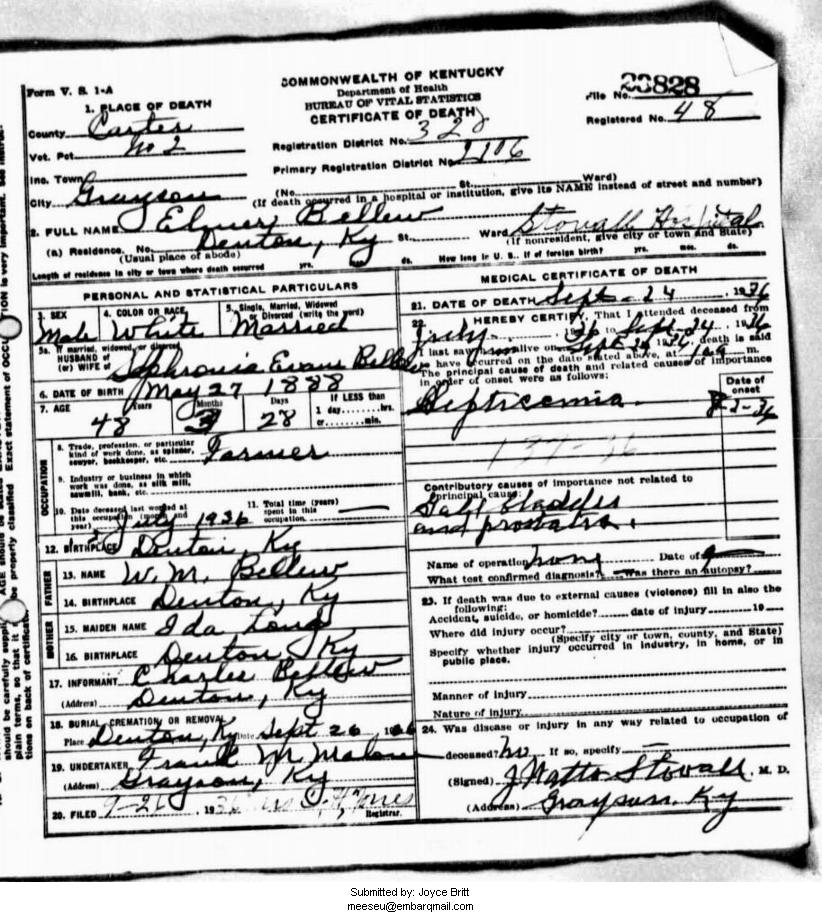 Form V. S. 1-A
COMMONWEALTH OF KENTUCKY
Department of Health
BUREAU OF VITAL STATISTICS
CERTIFICATE OF DEATH
File No. 23828
Registered No. 48
1. PLACE OF DEATH
County Carter
Vot. Pct. No 2
Inc. Town
City Grayson
Registration District No. 328
Primary Registration District No. 2106
(No. St. Ward)
(If death occurred in a hospital or institution, give its NAME instead of street and number)
2. FULL NAME Elmer Bellew
(a) Residence. No. Denton, Ky St. Ward Stovall Hospital
(Usual place of abode) (If nonresident, give city or town and State)
Length of residence in city or town where death occurred yrs. ds. How long in U. S., if of foreign birth? yrs. mos. ds.
PERSONAL AND STATISTICAL PARTICULARS
3. SEX Male
4. COLOR OR RACE White
5. Single, Married, Widowed or Divorced (write the word) Married
5a. If married, widowed, or divorced
HUSBAND of
(or) WIFE of Sophronia Evans Bellew
6. DATE OF BIRTH May 27 1888
7. AGE 48 Years 3 Months 28 Days If LESS than 1 day hrs. or min.
OCCUPATION
8. Trade, profession, or particular kind of work done, as spinner, sawyer, bookkeeper, etc. Farmer
9. Industry or business in which work was done, as silk mill, sawmill, bank, etc.
10. Date deceased last worked at this occupation (month and year) July 1936
11. Total time (years) spent in this occupation
12. BIRTHPLACE Denton, Ky
FATHER
13. NAME W. M. Bellew
14. BIRTHPLACE Denton, Ky
MOTHER
15. MAIDEN NAME Ida Long
16. BIRTHPLACE Denton, Ky
17. INFORMANT Charles Bellew
(Address) Denton, Ky
18. BURIAL, CREMATION OR REMOVAL
Place Denton, Ky Date Sept 26, 1936
19. UNDERTAKER Frank M. Malone
(Address) Grayson, Ky
20. FILED 9-26, 1936
Registrar.
MEDICAL CERTIFICATE OF DEATH
21. DATE OF DEATH Sept - 24, 1936
22. I HEREBY CERTIFY, That I attended deceased from
July 1936 to Sept. 24, 1936
I last saw him alive on Sept 24 1936, death is said
to have occurred on the date stated above, at m.
The principal cause of death and related causes of importance
in order of onset were as follows:
Date of onset
Septicemia 8-2-36
137-36
Contributory causes of importance not related to
principal cause:
Gall bladder
and prostatis.
Name of operation none Date of
What test confirmed diagnosis? Was there an autopsy?
23. If death was due to external causes (violence) fill in also the
following:
Accident, suicide, or homicide? date of injury 19
Where did injury occur?
(Specify city or town, county, and State)
Specify whether injury occurred in industry, in home, or in
public place.
Manner of injury
Nature of injury
24. Was disease or injury in any way related to occupation of
deceased? No If so, specify
(Signed) J Watts Stovall, M. D.
(Address) Grayson, Ky
Submitted by: Joyce Britt
meeseu@embarqmail.com